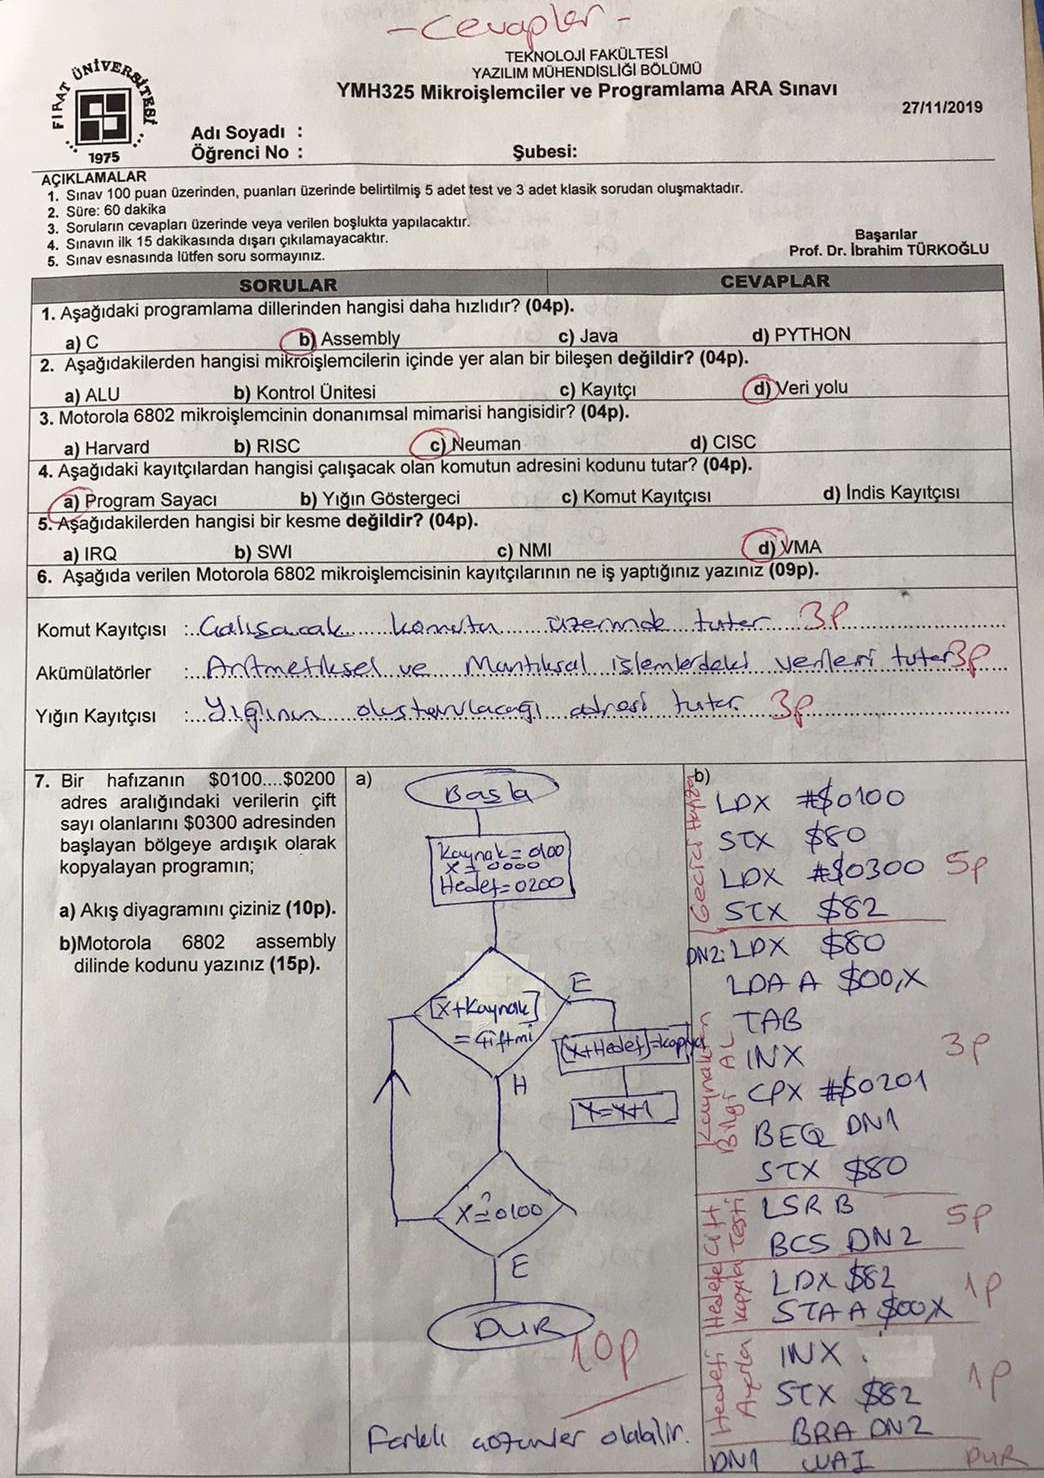 -Cevaplar-
TEKNOLOJİ FAKÜLTESİ
YAZILIM MÜHENDİSLİĞİ BÖLÜMÜ
YMH325 Mikroişlemciler ve Programlama ARA Sınavı
27/11/2019
FIRAT ÜNİVERSİTESİ
1975
Adı Soyadı :
Öğrenci No :
Şubesi:
AÇIKLAMALAR
1. Sınav 100 puan üzerinden, puanları üzerinde belirtilmiş 5 adet test ve 3 adet klasik sorudan oluşmaktadır.
2. Süre: 60 dakika
3. Soruların cevapları üzerinde veya verilen boşlukta yapılacaktır.
4. Sınavın ilk 15 dakikasında dışarı çıkılamayacaktır.
5. Sınav esnasında lütfen soru sormayınız.
Başarılar
Prof. Dr. İbrahim TÜRKOĞLU
SORULAR CEVAPLAR
1. Aşağıdaki programlama dillerinden hangisi daha hızlıdır? (04p).
a) C b) Assembly c) Java d) PYTHON
2. Aşağıdakilerden hangisi mikroişlemcilerin içinde yer alan bir bileşen değildir? (04p).
a) ALU b) Kontrol Ünitesi c) Kayıtçı d) Veri yolu
3. Motorola 6802 mikroişlemcinin donanımsal mimarisi hangisidir? (04p).
a) Harvard b) RISC c) Neuman d) CISC
4. Aşağıdaki kayıtçılardan hangisi çalışacak olan komutun adresini kodunu tutar? (04p).
a) Program Sayacı b) Yığın Göstergeci c) Komut Kayıtçısı d) İndis Kayıtçısı
5. Aşağıdakilerden hangisi bir kesme değildir? (04p).
a) IRQ b) SWI c) NMI d) VMA
6. Aşağıda verilen Motorola 6802 mikroişlemcisinin kayıtçılarının ne iş yaptığınız yazınız (09p).
Komut Kayıtçısı : Çalışacak komutu üzerinde tutar 3p
Akümülatörler : Aritmetiksel ve Mantıksal işlemlerdeki verileri tutar 3p
Yığın Kayıtçısı : Yığının oluşturulacağı adresi tutar 3p
7. Bir hafızanın $0100....$0200
adres aralığındaki verilerin çift
sayı olanlarını $0300 adresinden
başlayan bölgeye ardışık olarak
kopyalayan programın;
a) Akış diyagramını çiziniz (10p).
b)Motorola 6802 assembly
dilinde kodunu yazınız (15p).
a)
Başla
Kaynak=0100
X=0000
Hedef=0200
[X+Kaynak]
=Çift mi
E
H
[X+Hedef]=kopya
X=X+1
X=?0100
E
DUR
10p
Farklı çözümler olabilir.
b)
Geçici Hafıza
LDX #$0100
STX $80
LDX #$0300 5p
STX $82
Kaynaktan
Bilgi AL
DN2: LDX $80
LDA A $00,X
TAB
INX 3p
CPX #$0201
BEQ DN1
STX $80
Çift
Testi
LSR B 5p
BCS DN2
Hedefe
kopyala
LDX $82 1p
STA A $00X
Hedefi
Ayarla
INX
STX $82 1p
BRA DN2
DN1 WAI DUR